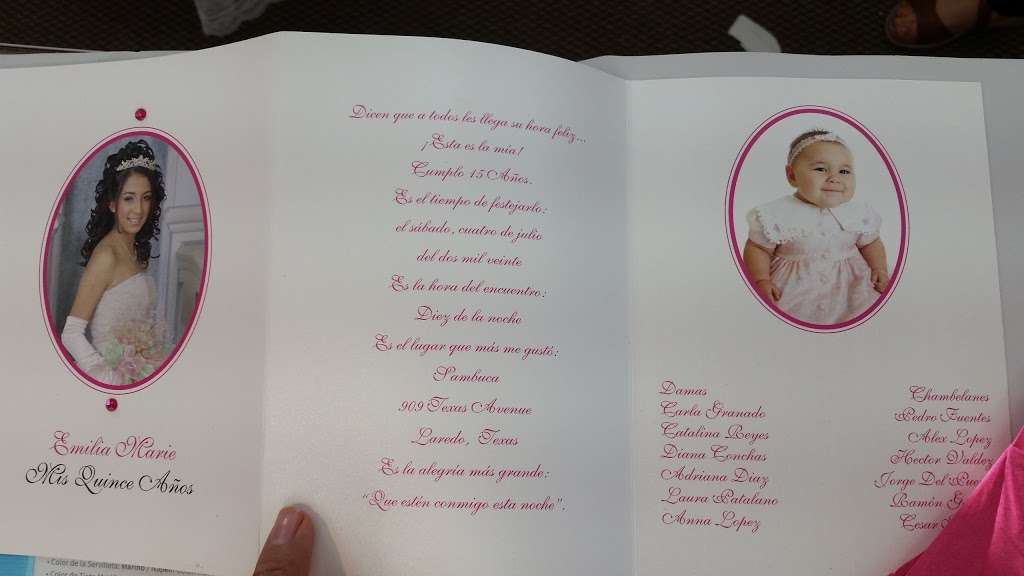 Emilia Marie
Mis Quince Años
Dicen que a todos les llega su hora feliz...
¡Esta es la mia!
Cumplo 15 Años.
Es el tiempo de festejarlo:
el sábado, cuatro de julio
del dos mil veinte
Es la hora del encuentro:
Diez de la noche
Es el lugar que más me gustó:
Sambuca
909 Texas Avenue
Laredo, Texas
Es la alegría más grande:
"Que estén conmigo esta noche".
Damas
Carla Granado
Catalina Reyes
Diana Conchas
Adriana Diaz
Laura Patalano
Anna Lopez
Chambelanes
Pedro Fuentes
Alex Lopez
Hector Valdez
Jorge Del
Ramón
Cesar
• Color de la Servilleta: Marino /